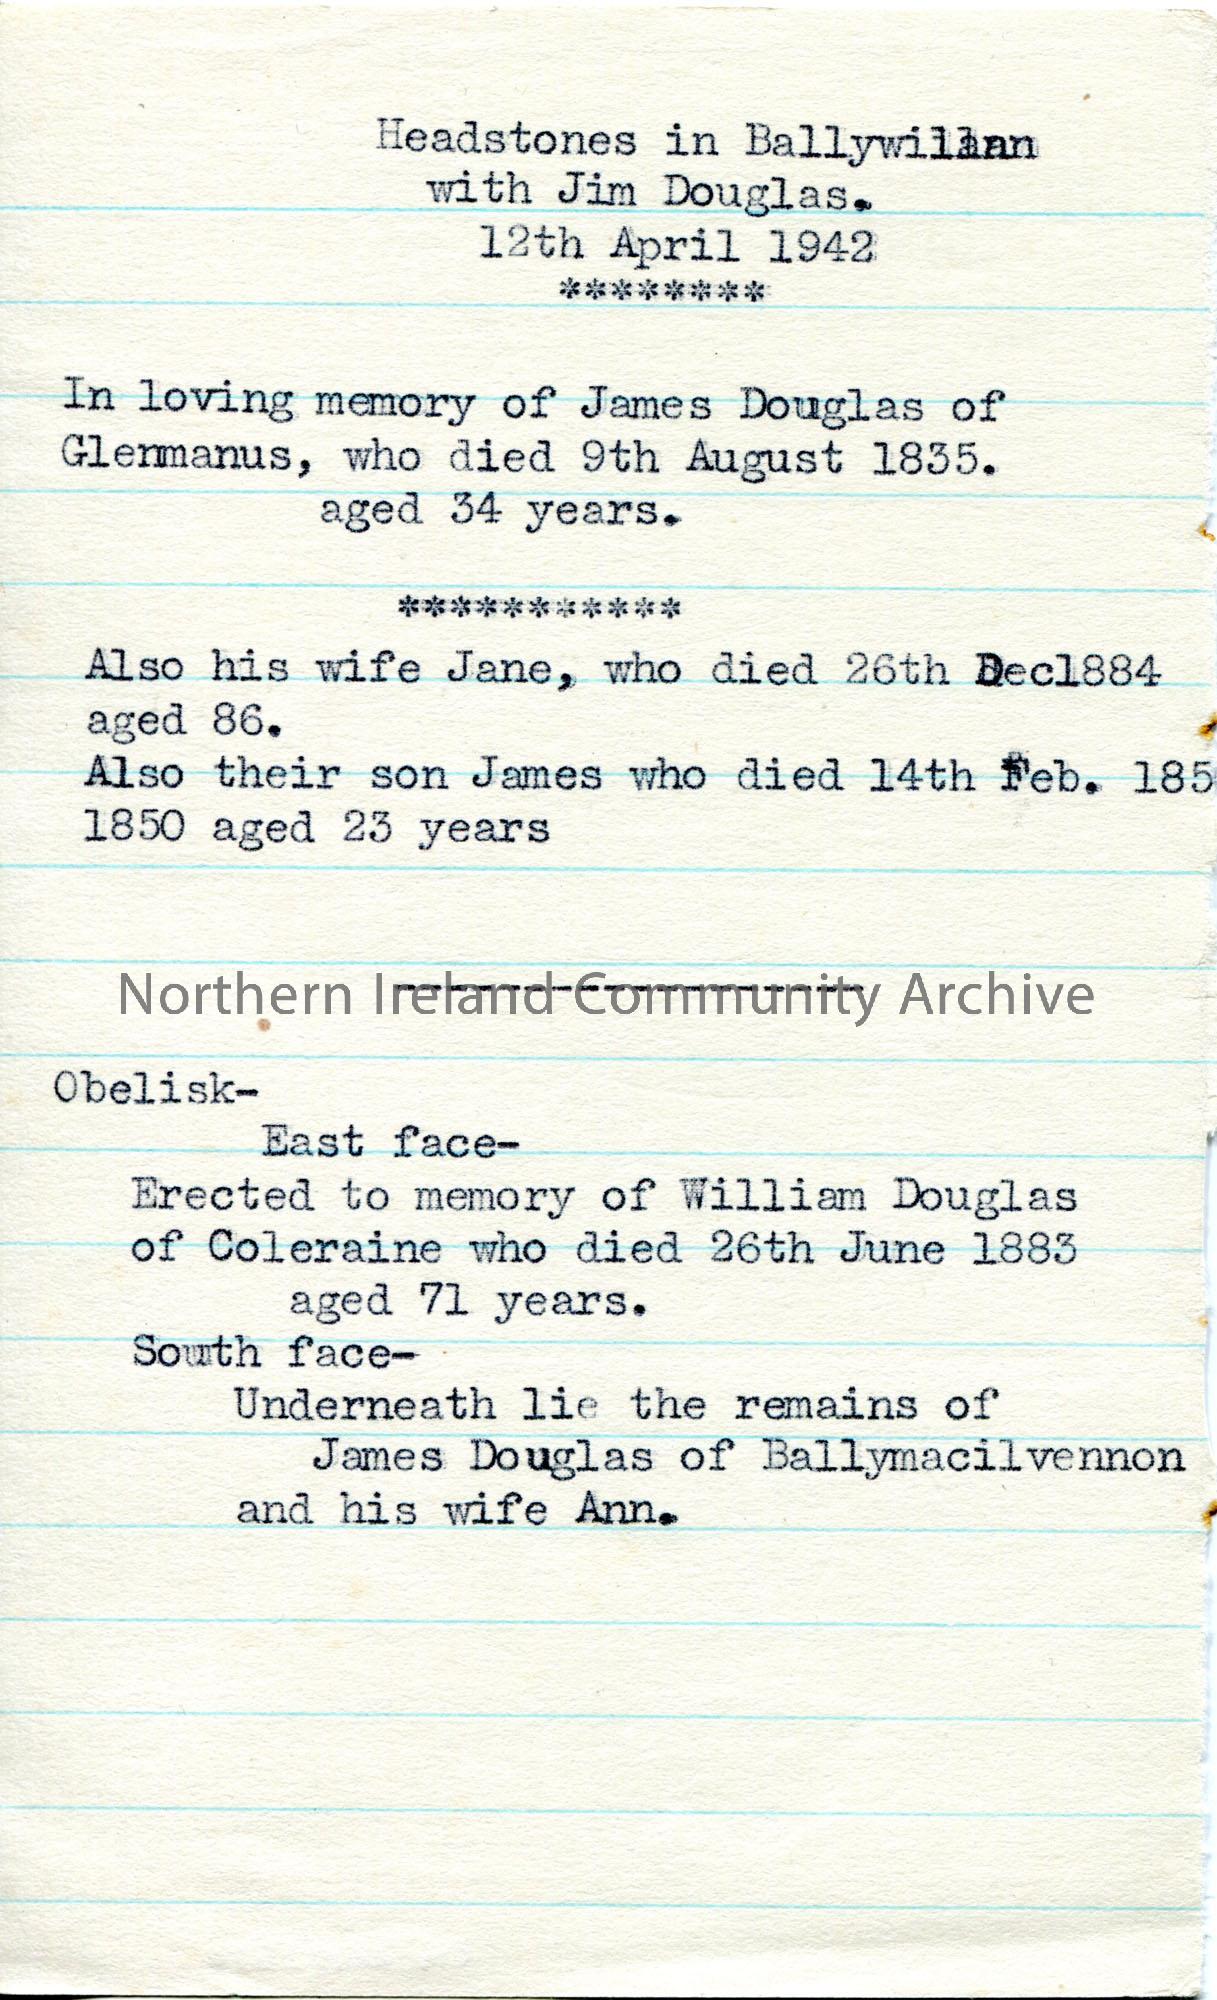 Headstones in Ballywillan
with Jim Douglas.
12th April 1942
********
In loving memory of James Douglas of
Glenmanus, who died 9th August 1835.
aged 34 years.
***********
Also his wife Jane, who died 26th Dec1884
aged 86.
Also their son James who died 14th Feb. 185
1850 aged 23 years
Northern Ireland Community Archive
Obelisk-
East face-
Erected to memory of William Douglas
of Coleraine who died 26th June 1883
aged 71 years.
South face-
Underneath lie the remains of
James Douglas of Ballymacilvennon
and his wife Ann.